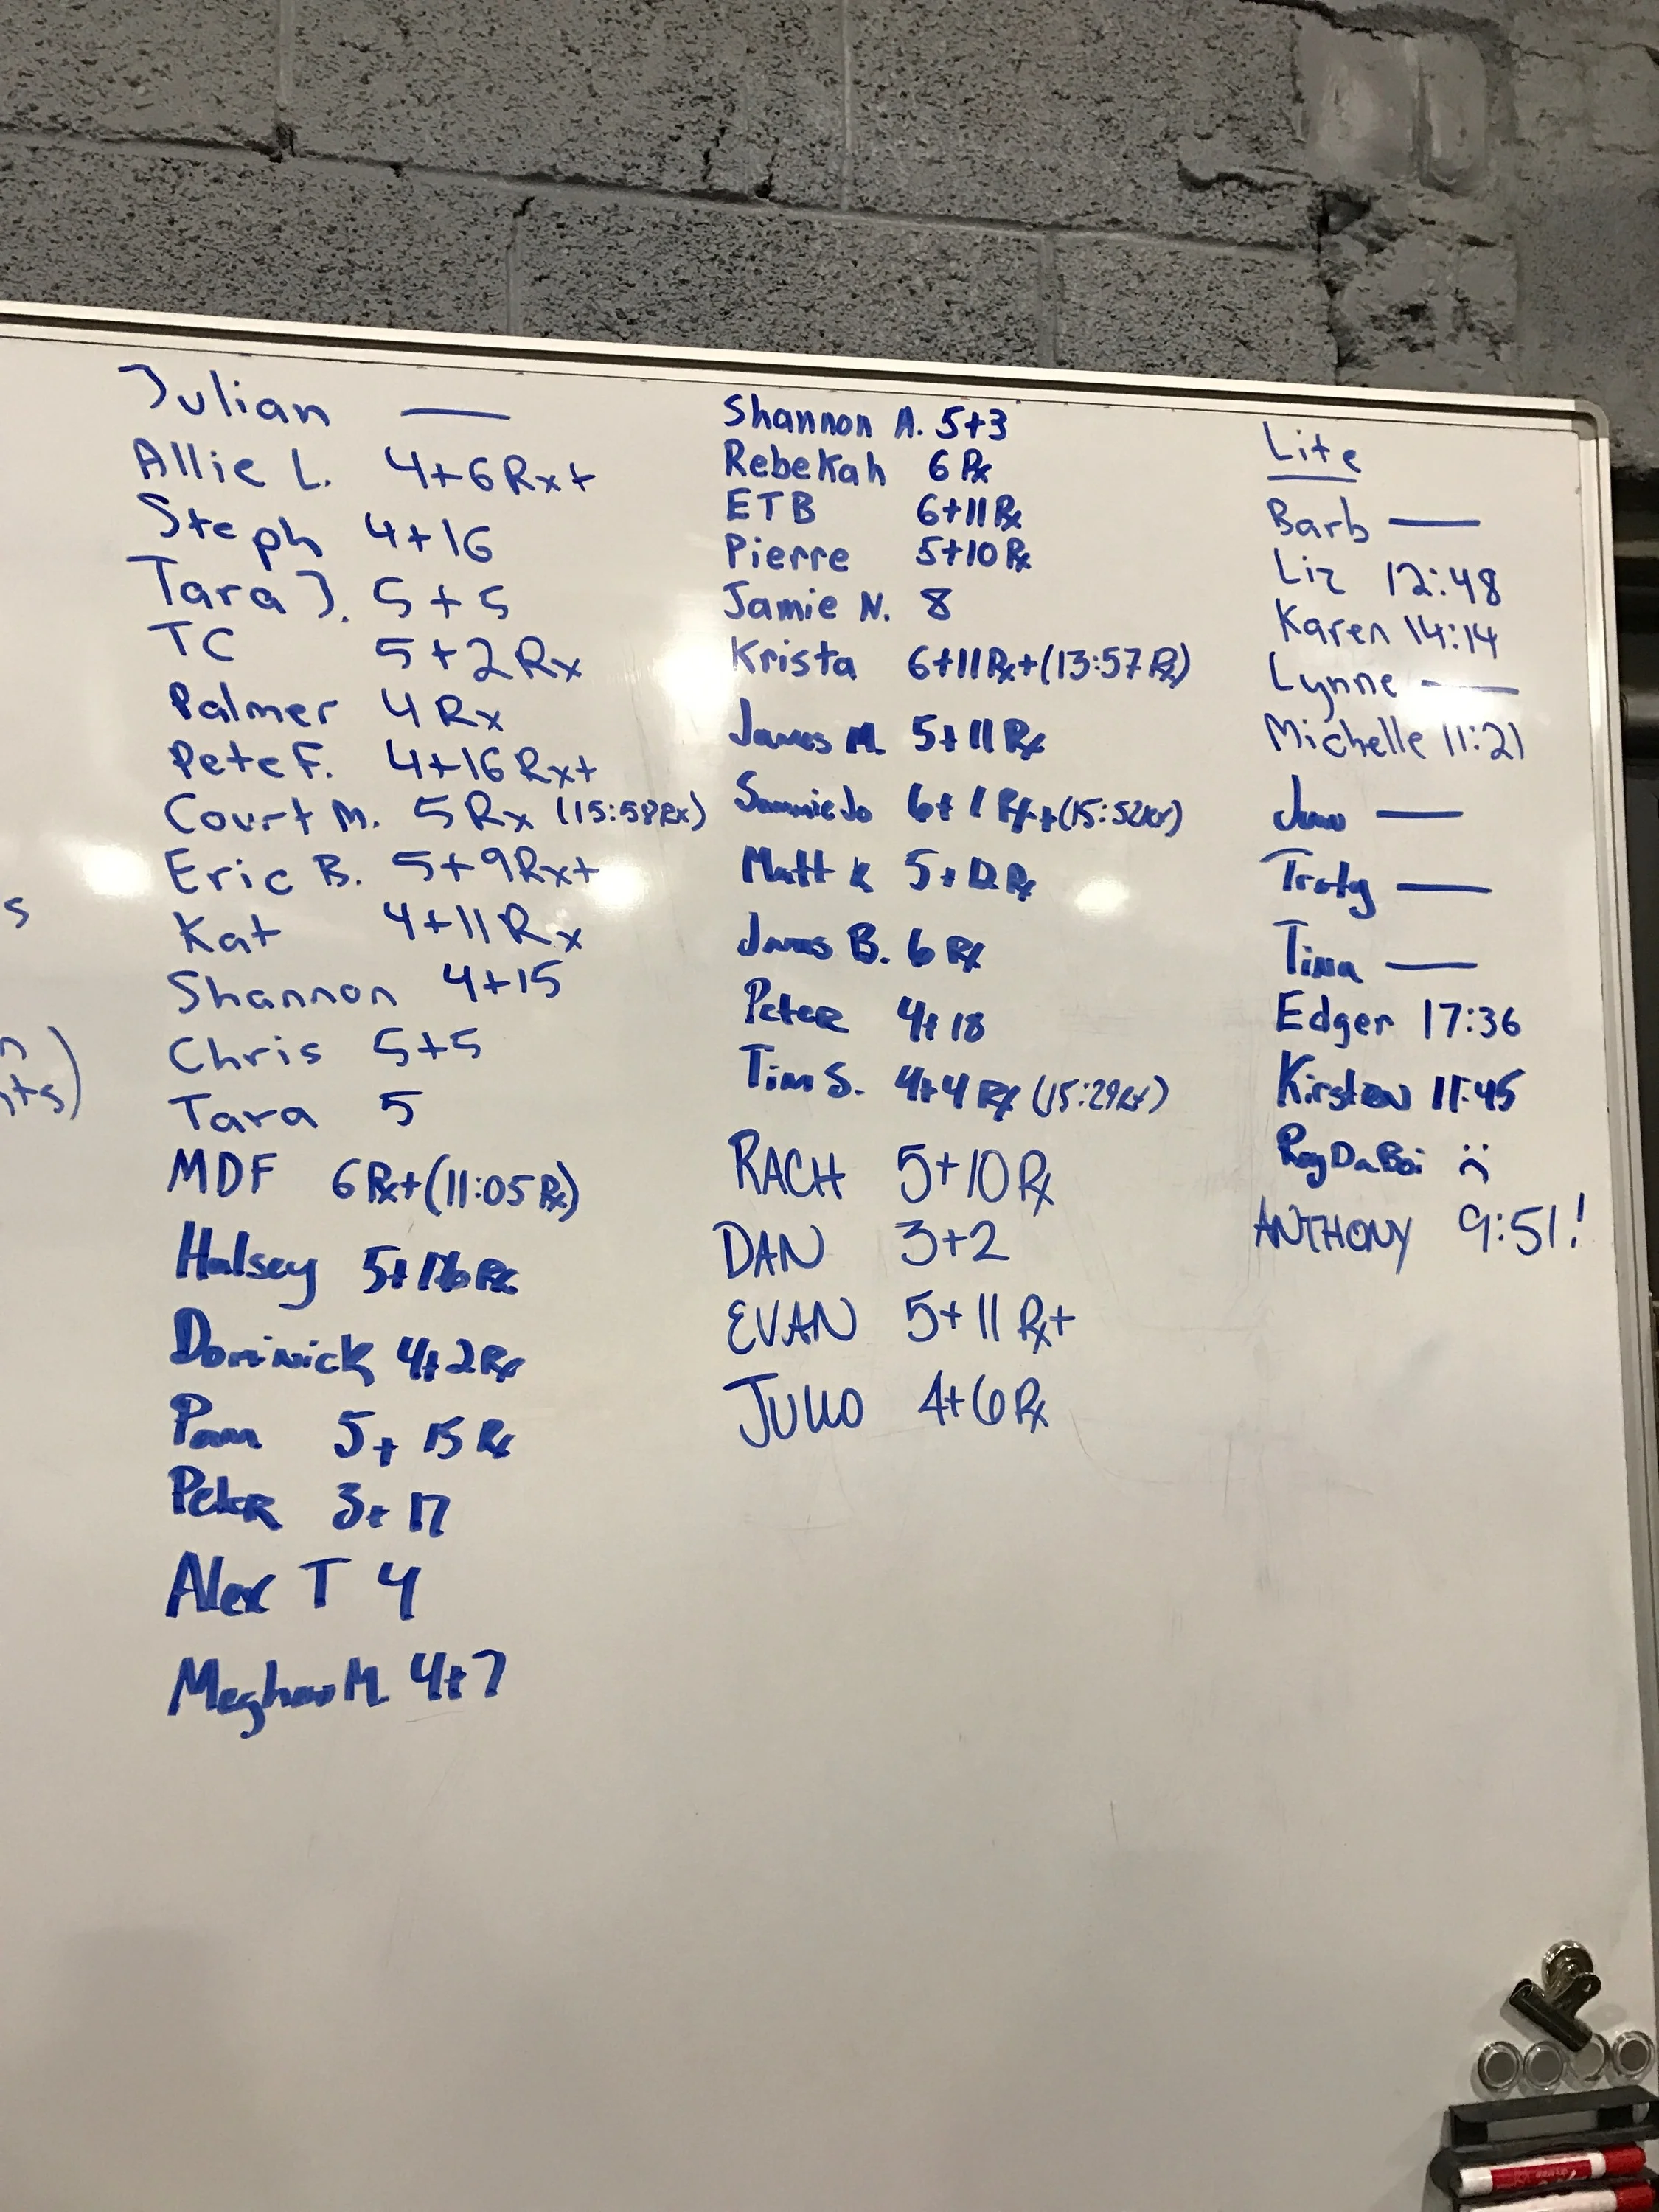 Julian —
Allie L. 4+6 Rx+
Steph 4+16
Tara J. 5+5
TC 5+2 Rx
Palmer 4 Rx
Pete F. 4+16 Rx+
Court M. 5 Rx (15:58 Rx)
Eric B. 5+9 Rx+
Kat 4+11 Rx
Shannon 4+15
Chris 5+5
Tara 5
MDF 6 Rx+ (11:05 Rx)
Halsey 5+ Rx
Dominick 4+2 Rx
Pam 5+15 Rx
Peter 3+17
Alex T 4
Meghan M. 4+7
Shannon A. 5+3
Rebekah 6 Rx
ETB 6+11 Rx
Pierre 5+10 Rx
Jamie N. 8
Krista 6+11 Rx+ (13:57 Rx)
James M. 5+11 Rx
Sammie Jo 6+1 Rx+ (15:52 Rx)
Matt K 5+12 Rx
James B. 6 Rx
Peter 4+18
Tim S. 4+4 Rx (15:29 Rx)
RACH 5+10 Rx
DAN 3+2
EVAN 5+11 Rx+
JULIO 4+6 Rx
Lite
Barb —
Liz 12:48
Karen 14:14
Lynne —
Michelle 11:21
—
—
Tina —
Edger 17:36
Kirsten 11:45
RoyDaBoi :(
ANTHONY 9:51!